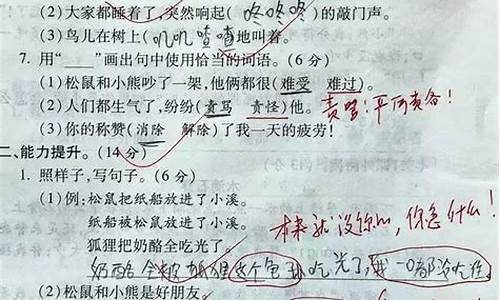 (2)大家都睡着了,突然响起(咚咚咚)的敲门声。
(3)鸟儿在树上(叽叽喳喳)地叫着。
7. 用“____”画出句中使用恰当的词语。(6 分)
(1)松鼠和小熊吵了一架,他俩都很(难受 难过)。
(2)人们都生气了,纷纷(责骂 责怪)他。
责
(3)你的称赞(消除 解除)了我一天的疲劳!
二、能力提升。(14 分)
1. 照样子,写句子。(6 分)
(1)例:松鼠把纸船放进了小溪。
纸船被松鼠放进了小溪。
本来就没你心,你急什么!
狐狸把奶酪全吃光了。
奶酪全 这个 吃光了,我一口都没吃
(2)松鼠和小熊是好朋友。